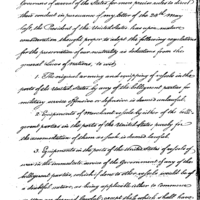 Governors of several of the States for more precise rules to direct
their conduct in pursuance of my letter of the 23rd May
last, the President of the United States has upon mature
consideration thought proper to adopt the following regulations
for the preservation of our neutrality as deductions from the
general laws of nations, to wit,
1. The original arming and equipping of vessels in the
ports of the United States by any of the belligerent parties for
military service offensive or defensive is deemed unlawful.
2. Equipments of merchant vessels by either of the belli-
gerent parties in the ports of the United States purely for
the accommodation of them as such is deemed lawful.
3. Equipments in the ports of the United States of vessels of
war in the immediate service of the Government of any of the
belligerent parties, which if done to other vessels would be of
a doubtful nature, as being applicable either to commerce
or war are deemed lawful; except those which shall have